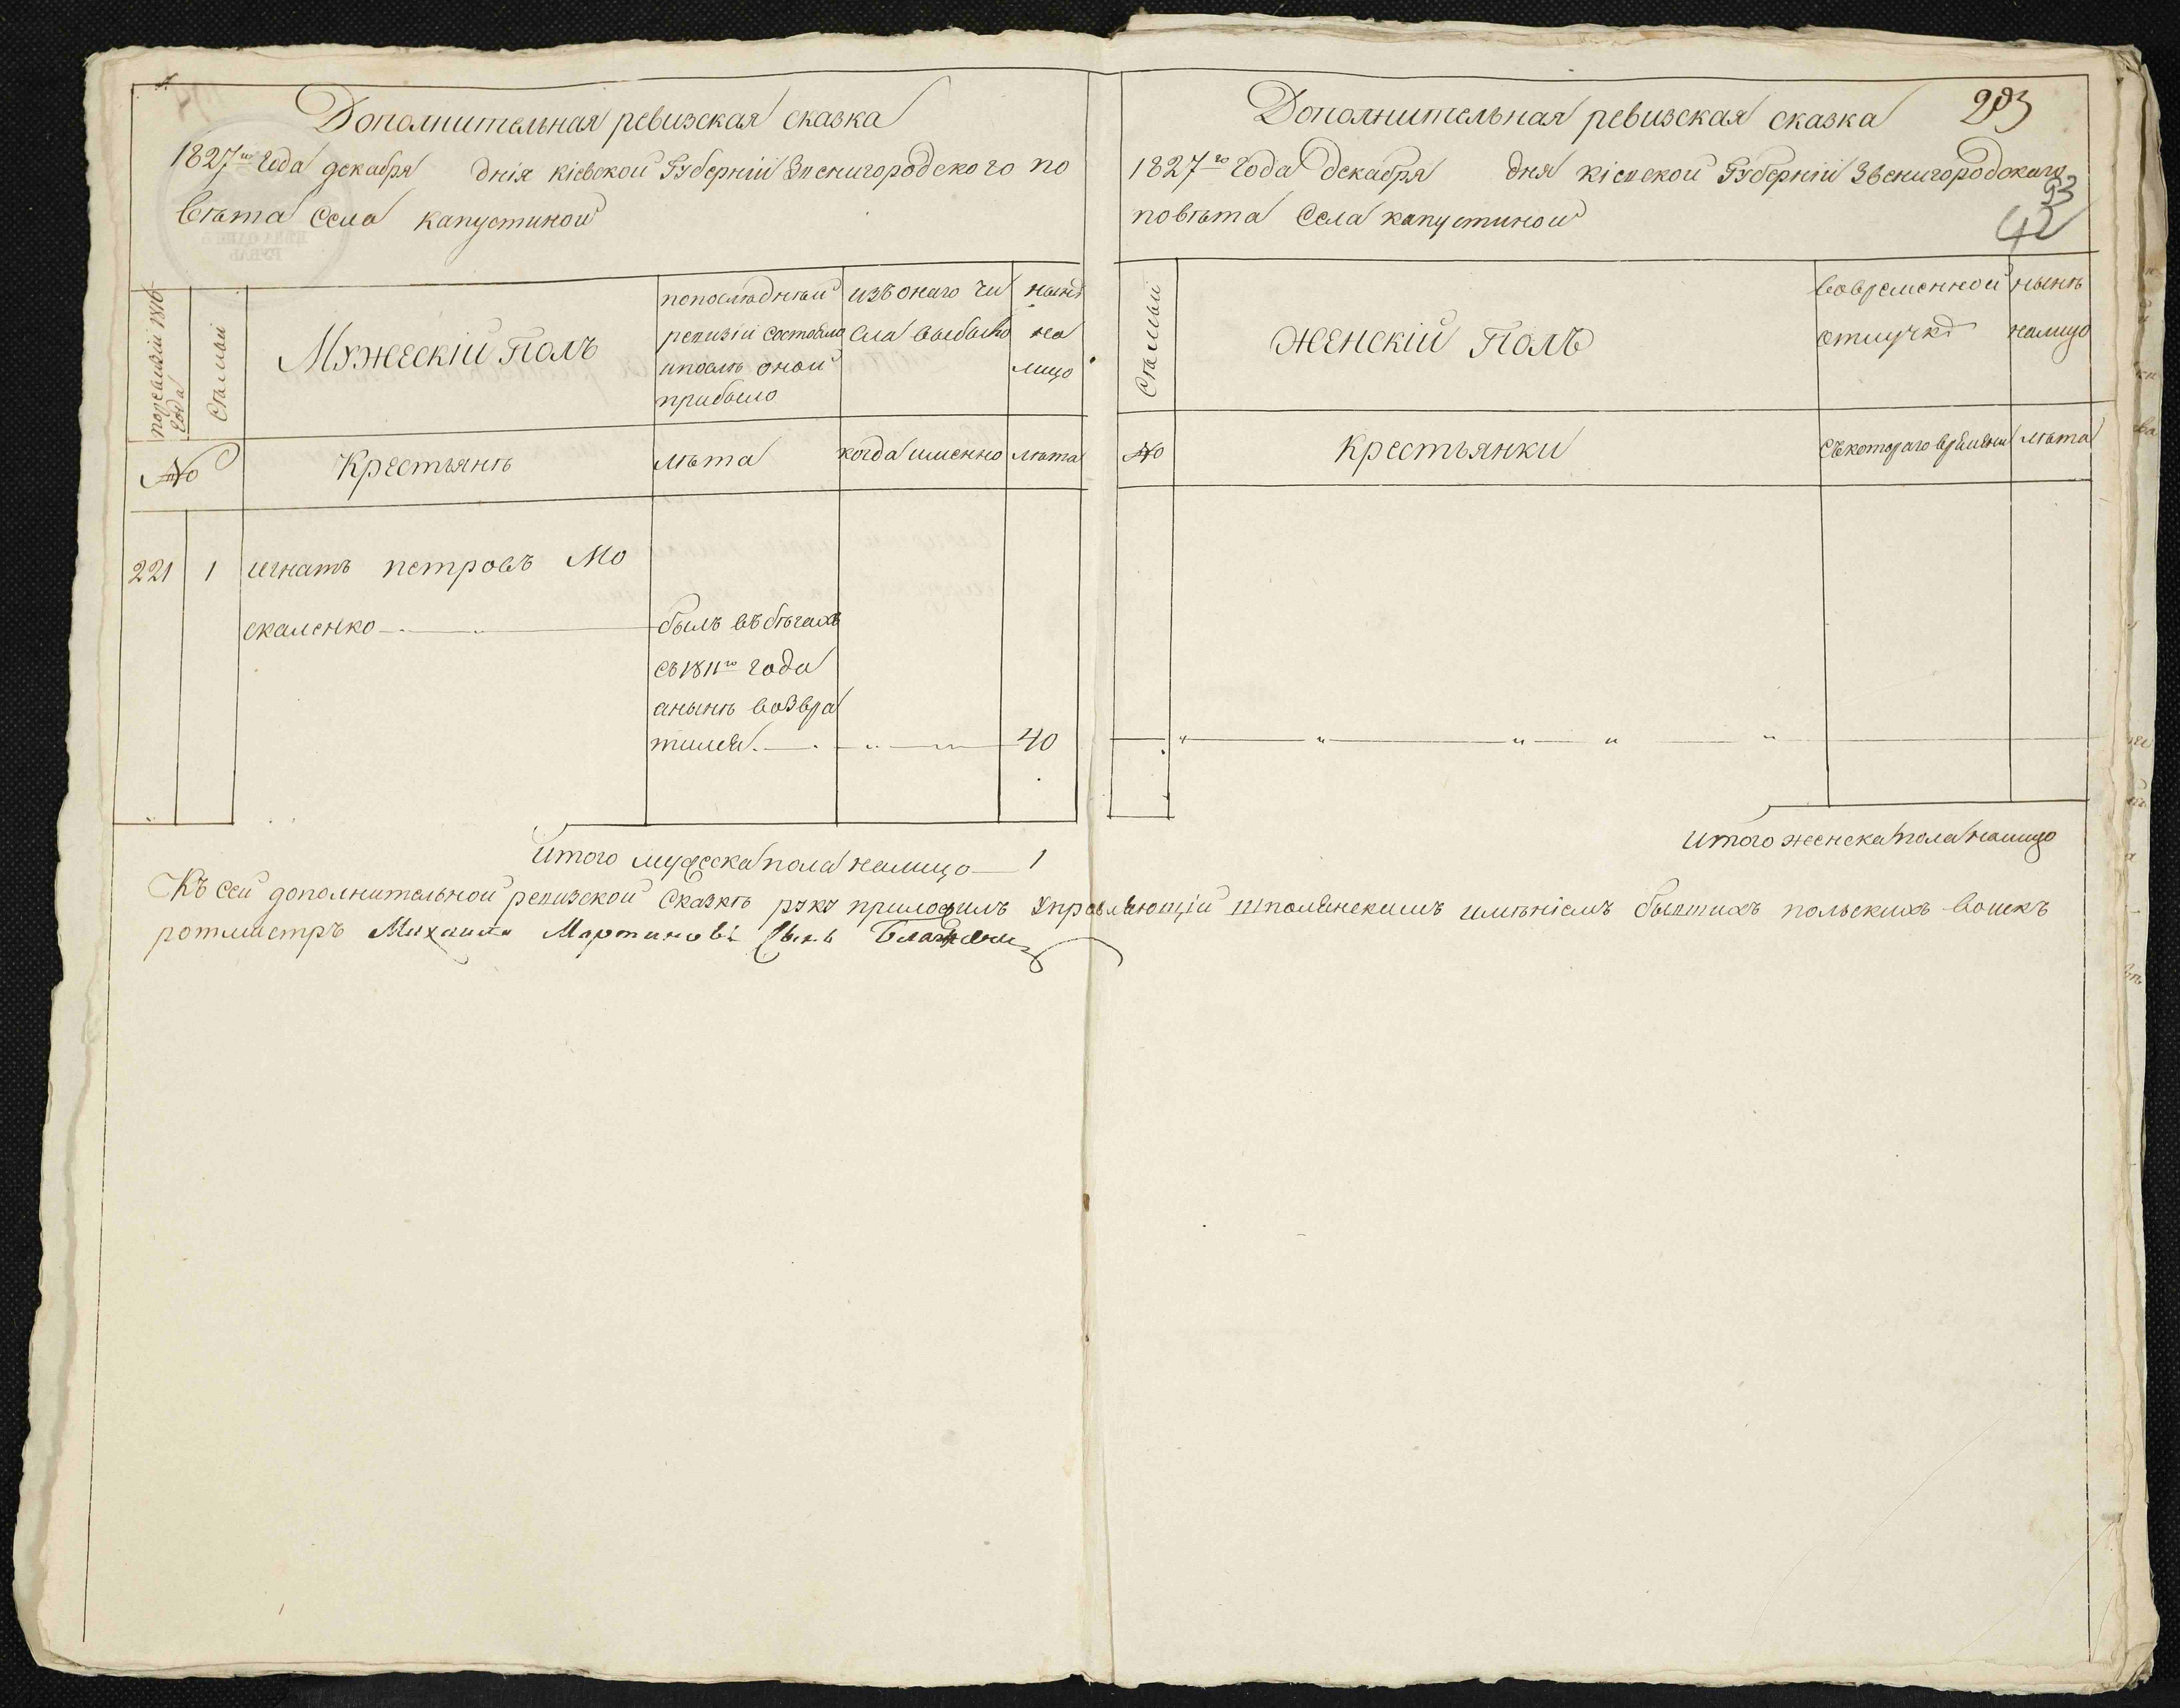 Дополнительная ревизская сказка
1827го Года декабря днія кіевской Губерніи Звенигородского по
вѣта Села капустиной
по ревизіи 1816
Года
Стаmъи
Мужескій Полъ
попослѣдней
ревизіи состояло
ипослѣ оной
прибыло
изъ онаго чи
сла выбыло
нынѣ
на
лицо
№
Крестьянѣ
лѣта
когда именно
лѣта
221 1 игнатъ петровъ Мо
скаленко
былъ въ бѣгахъ
съ 1811го года
анынѣ возвра
тился 40
Итого мужеска пола налицо 1
Дополнительная ревизская сказка
203
1827го Года Декабря дня кіевской Губерніи Звенигородскаго
повѣта Села капустиной
93
42
Женскій Полъ
вовременной
отлучкѣ
нынѣ
налицо
№
Крестьянки
съ котораго времени
лѣта
Итого женска пола налицо
Къ сей дополнительной ревизской Сказкѣ руку приложилъ Управляющій шполянскимъ имѣніемъ бывшихъ польскихъ воискъ
ротмистръ Михаилъ Мартиновъ Сынъ